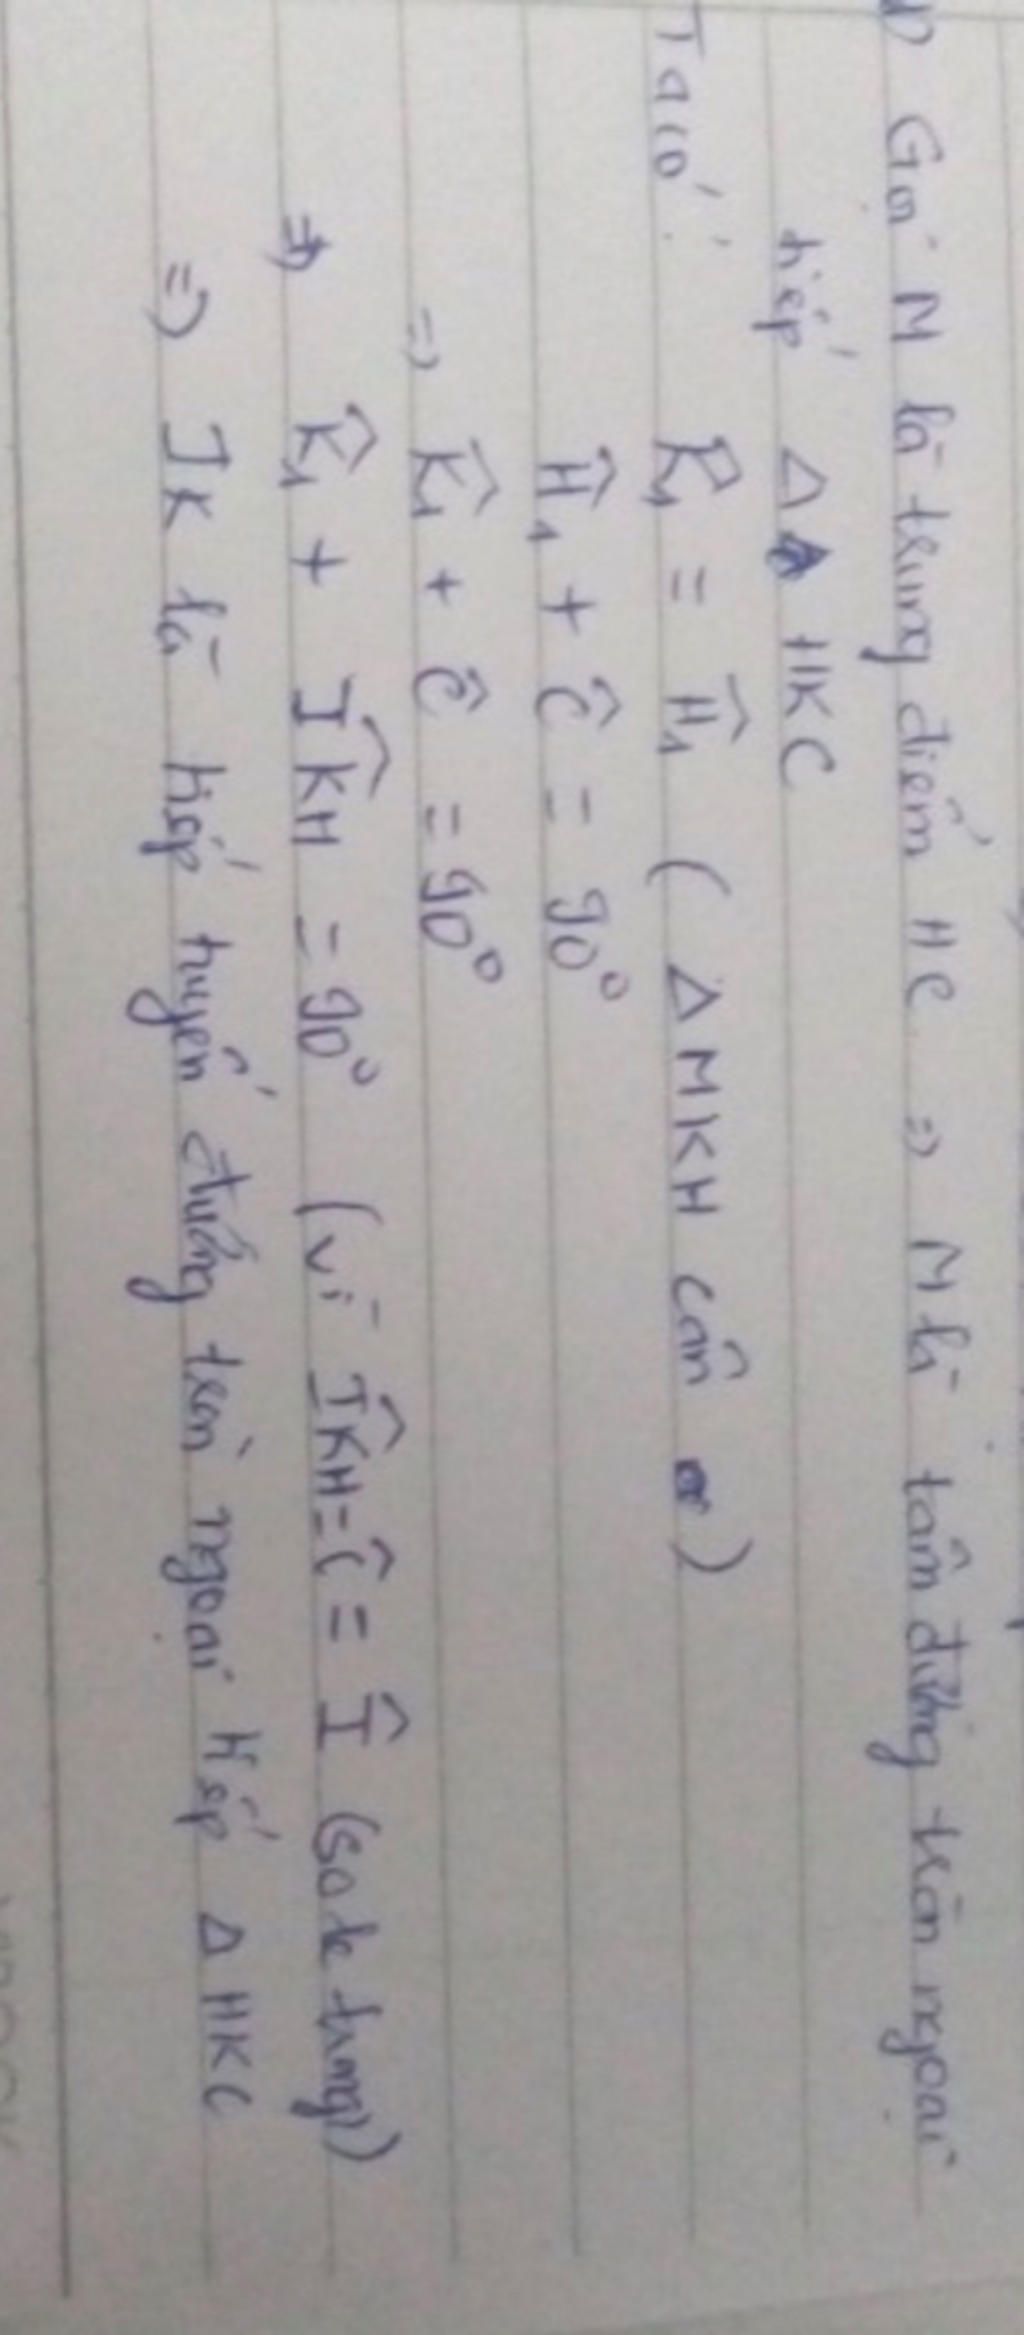 d) Gọi M là trung điểm HC => M là tâm đường tròn ngoại
tiếp Δ HKC
Ta có: K̂₁ = Ĥ₁ ( Δ MKH cân )
Ĥ₁ + Ĉ = 90°
=> K̂₁ + Ĉ = 90°
=> K̂₁ + IK̂H = 90° (vì IK̂H = Ĉ = Î (so le trong))
=> IK là tiếp tuyến đường tròn ngoại tiếp Δ HKC